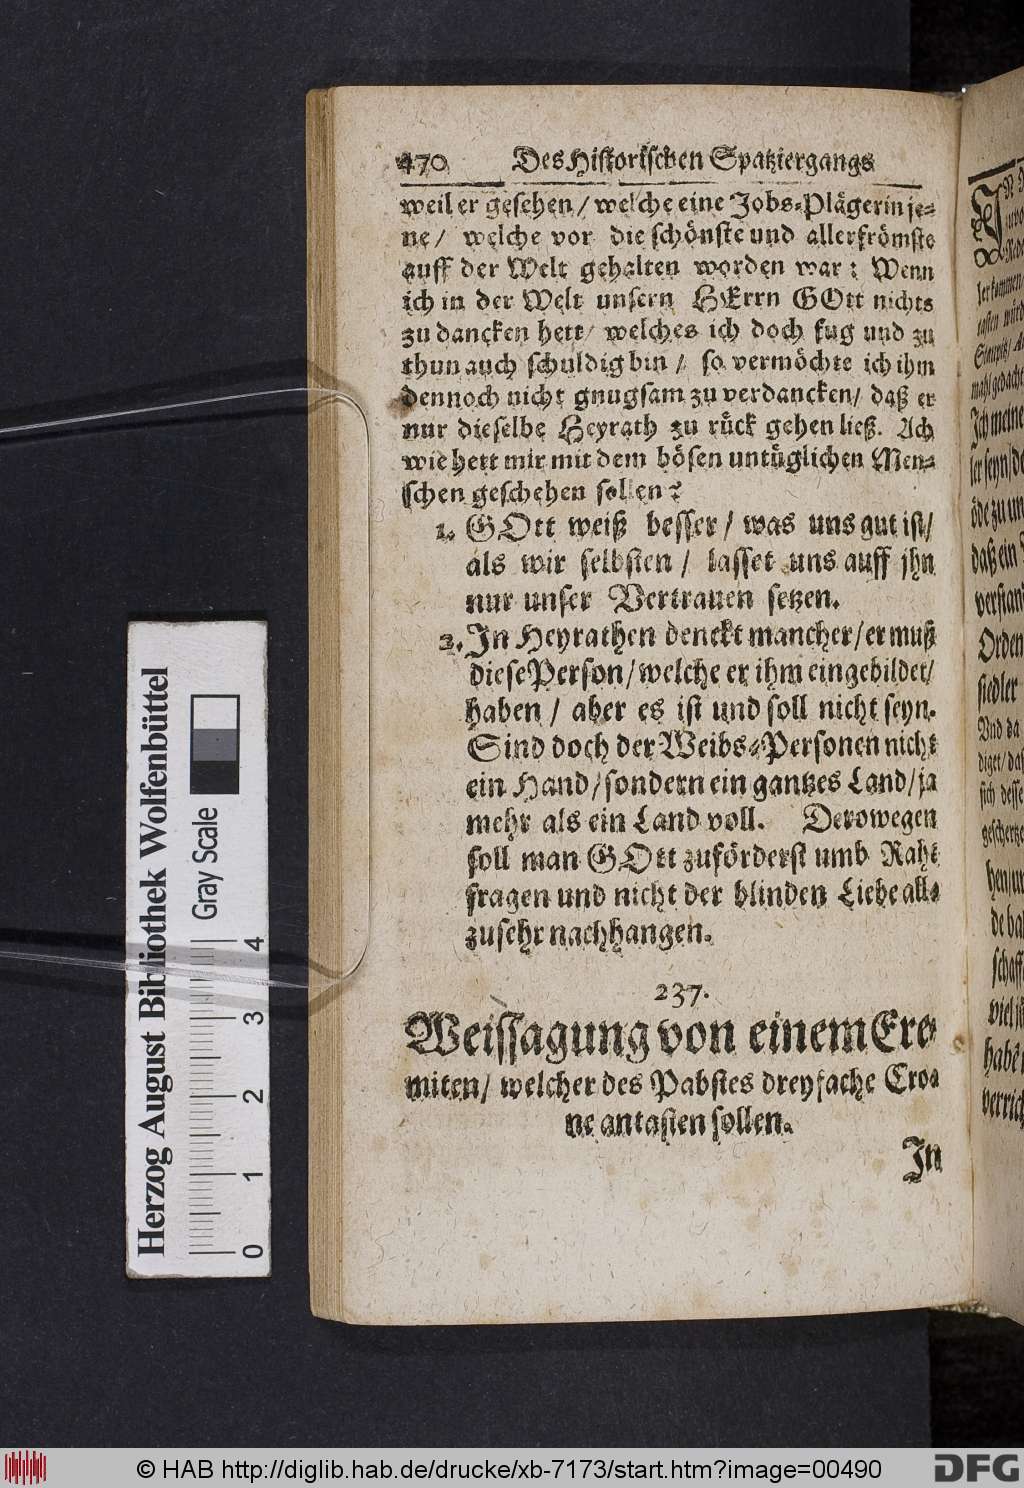 470 Des Historischen Spatziergangs
weil er gesehen / welche eine Jobs-Plägerin je-
ne / welche vor die schönste und allerfrömste
auff der Welt gehalten worden war: Wenn
ich in der Welt unsern HErrn GOtt nichts
zu dancken hett / welches ich doch fug und zu
thun auch schuldig bin / so vermöchte ich ihm
dennoch nicht gnugsam zu verdancken / daß er
nur dieselbe Heyrath zu rück gehen ließ. Ach
wie hett mir mit dem bösen untüglichen Men-
schen geschehen sollen?
1. GOtt weiß besser / was uns gut ist /
als wir selbsten / lasset uns auff jhn
nur unser Vertrauen setzen.
2. In Heyrathen denckt mancher / er muß
diese Person / welche er ihm eingebildet /
haben / aber es ist und soll nicht seyn.
Sind doch der Weibs-Personen nicht
ein Hand / sondern ein gantzes Land / ja
mehr als ein Land voll. Derowegen
soll man GOtt zuförderst umb Raht
fragen und nicht der blinden Liebe all-
zusehr nachhangen.
237.
Weissagung von einem Ere-
miten / welcher des Pabstes dreyfache Cro-
ne antasten sollen.
In
Ich meine
daß ein
Orden
siedler
Und da
Herzog August Bibliothek Wolfenbüttel
Gray Scale
0 1 2 3 4
© HAB http://diglib.hab.de/drucke/xb-7173/start.htm?image=00490
DFG